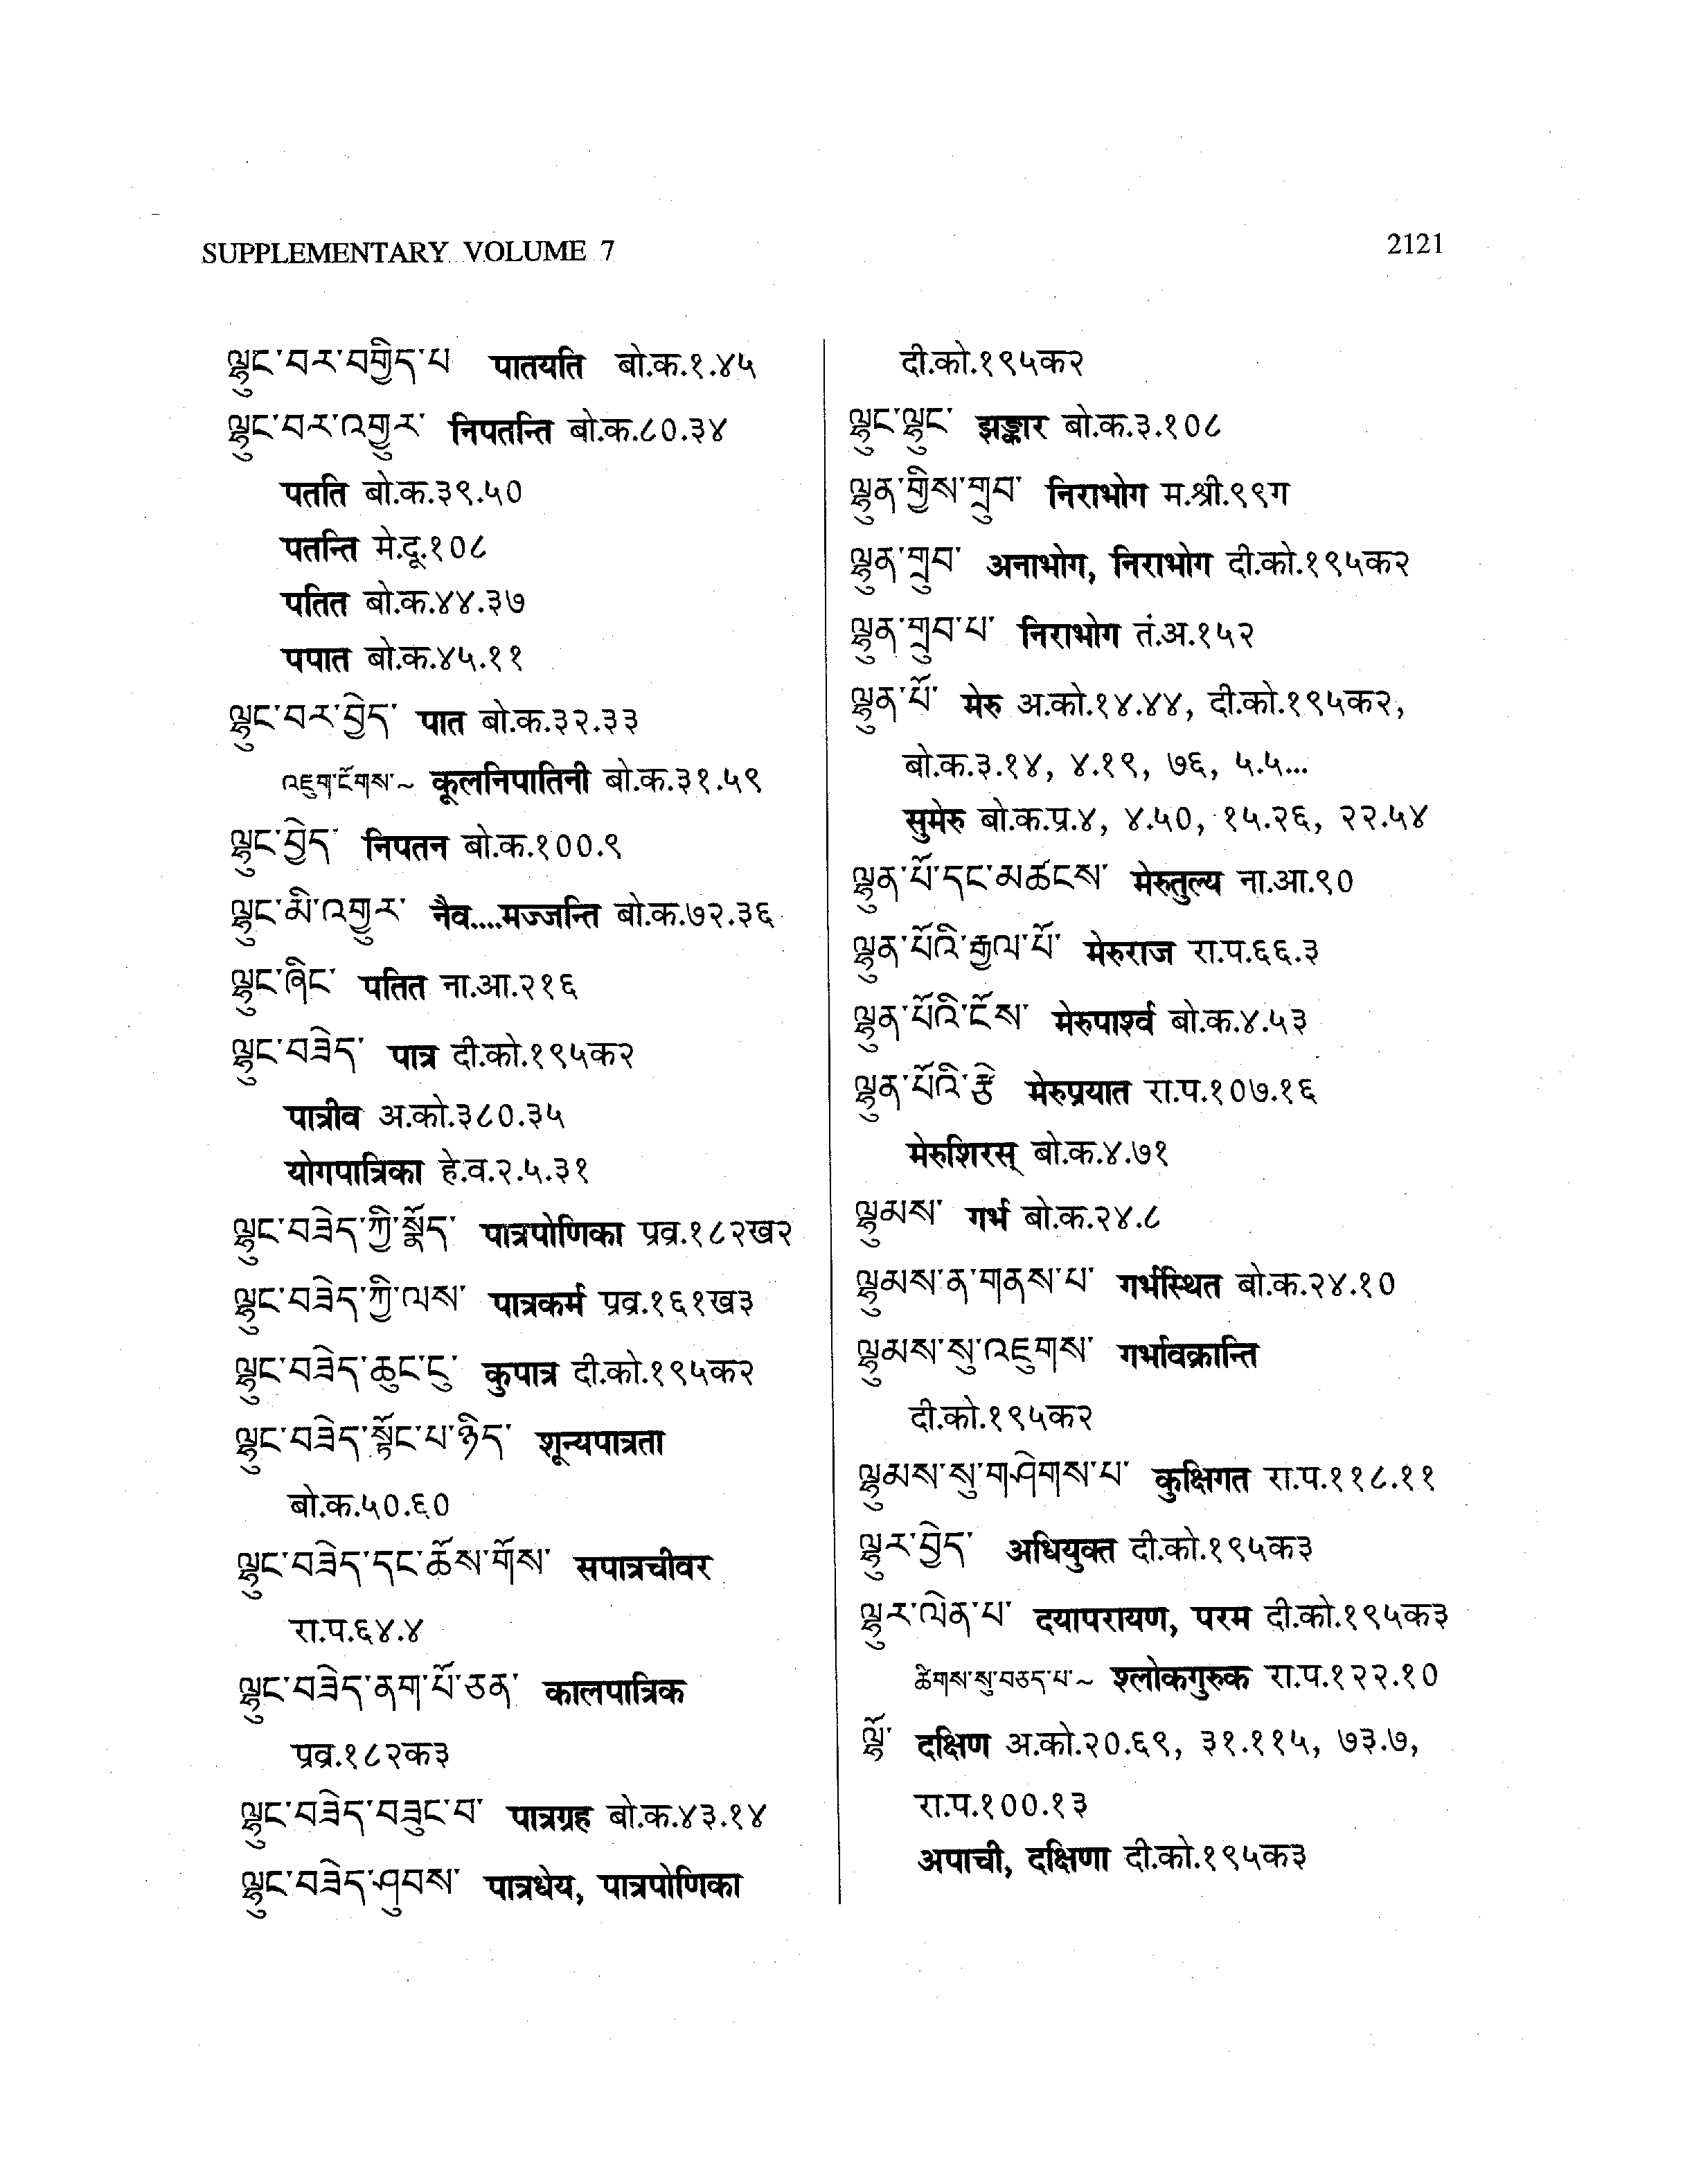 SUPPLEMENTARY VOLUME 7
2121
ལྷུང་བར་བགྱིད་པ पातयति बो.क.१.४५
ལྷུང་བར་འགྱུར་ निपतन्ति बो.क.८०.३४
पतति बो.क.३९.५०
पतन्ति मे.दू.१०८
पतित बो.क.४४.३७
पपात बो.क.४५.११
ལྷུང་བར་བྱེད་ पात बो.क.३२.३३
འཇུག་ངོགས་~ कूलनिपातिनी बो.क.३१.५९
ལྷུང་བྱེད་ निपतन बो.क.१००.९
ལྷུང་མི་འགྱུར་ नैव....मज्जन्ति बो.क.७२.३६
ལྷུང་ཞིང་ पतित ना.आ.२१६
ལྷུང་བཟེད་ पात्र दी.को.१९५क२
पात्रीव अ.को.३८०.३५
योगपात्रिका हे.व.२.५.३१
ལྷུང་བཟེད་ཀྱི་སྣོད་ पात्रपोणिका प्रव्र.१८२ख२
ལྷུང་བཟེད་ཀྱི་ལས་ पात्रकर्म प्रव्र.१६१ख३
ལྷུང་བཟེད་ཆུང་ངུ་ कुपात्र दी.को.१९५क२
ལྷུང་བཟེད་སྟོང་པ་ཉིད་ शून्यपात्रता
बो.क.५०.६०
ལྷུང་བཟེད་དང་ཆོས་གོས་ सपात्रचीवर
रा.प.६४.४
ལྷུང་བཟེད་ནག་པོ་ཅན་ कालपात्रिक
प्रव्र.१८२क३
ལྷུང་བཟེད་བཟུང་བ་ पात्रग्रह बो.क.४३.१४
ལྷུང་བཟེད་ཤུབས་ पात्रधेय, पात्रपोणिका
दी.को.१९५क२
ལྷུང་ལྷུང་ झङ्कार बो.क.३.१०८
ལྷུན་གྱིས་གྲུབ་ निराभोग म.श्री.९९ग
ལྷུན་གྲུབ་ अनाभोग, निराभोग दी.को.१९५क२
ལྷུན་གྲུབ་པ་ निराभोग तं.अ.१५२
ལྷུན་པོ་ मेरु अ.को.१४.४४, दी.को.१९५क२,
बो.क.३.१४, ४.१९, ७६, ५.५...
सुमेरु बो.क.प्र.४, ४.५०, १५.२६, २२.५४
ལྷུན་པོ་དང་མཚངས་ मेरुतुल्य ना.आ.९०
ལྷུན་པོའི་རྒྱལ་པོ་ मेरुराज रा.प.६६.३
ལྷུན་པོའི་ངོས་ मेरुपार्श्व बो.क.४.५३
ལྷུན་པོའི་རྩེ मेरुप्रयात रा.प.१०७.१६
मेरुशिरस् बो.क.४.७१
ལྷུམས་ गर्भ बो.क.२४.८
ལྷུམས་ན་གནས་པ་ गर्भस्थित बो.क.२४.१०
ལྷུམས་སུ་འཇུགས་ गर्भावक्रान्ति
दी.को.१९५क२
ལྷུམས་སུ་གཤེགས་པ་ कुक्षिगत रा.प.११८.११
ལྷུར་བྱེད་ अधियुक्त दी.को.१९५क३
ལྷུར་ལེན་པ་ दयापरायण, परम दी.को.१९५क३
ཚིགས་སུ་བཅད་པ་~ श्लोकगुरुक रा.प.१२२.१०
ལྷོ་ दक्षिण अ.को.२०.६९, ३१.११५, ७३.७,
रा.प.१००.१३
अपाची, दक्षिणा दी.को.१९५क३